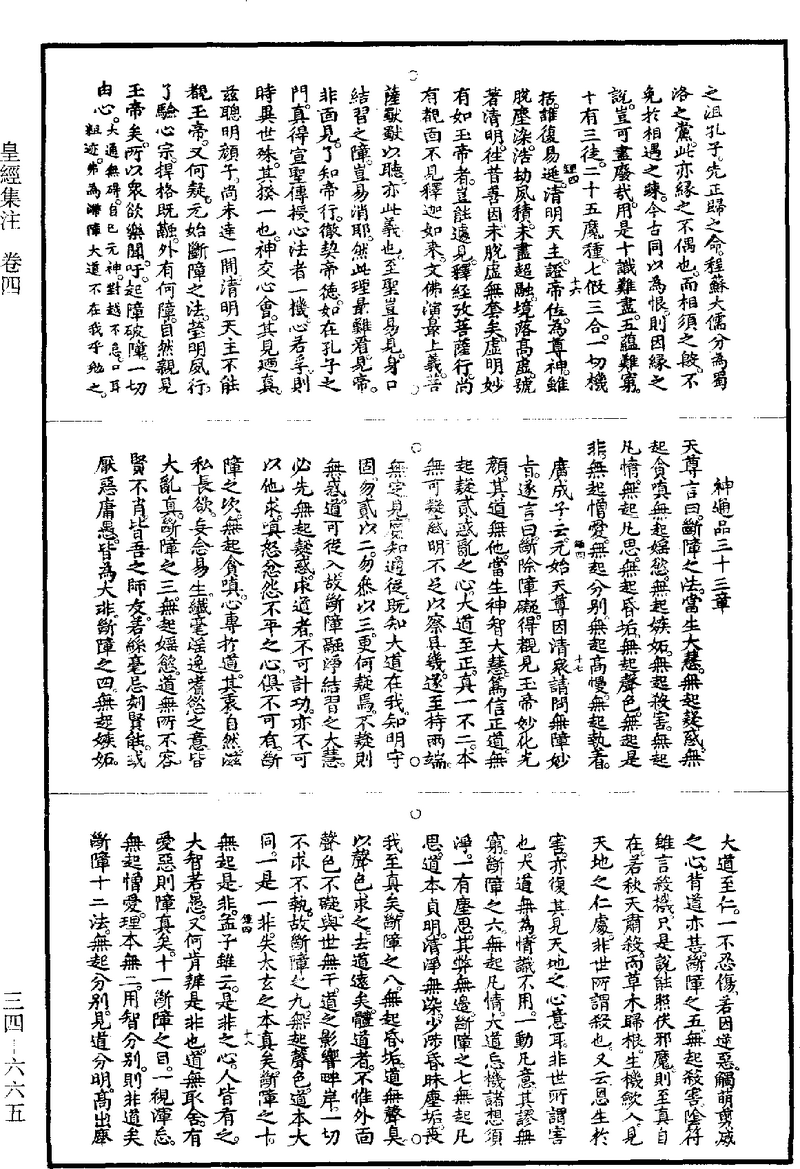 皇經集注　卷四
三四－六六五
之沮孔子。先正歸之命。程蘇大儒分為蜀
洛之黨。此亦緣之不偶也。而相須之殷。不
免於相遇之疎。今古同以為恨。則因緣之
說。豈可盡廢哉。用是十識難盡。五蘊難窮。
十有三徒。二十五魔種。七假三合。一切機
括。誰復易遞。清明天主。證帝位。為尊神。雖
經四
十六
脫塵染。浩劫夙積。未盡超融。境落高虛。號
著清明。徃昔善因。未脫虛無塵矣。虛明妙
有。如玉帝者。豈能遽見。釋經攷菩薩行。尚
有覿面不見釋迦如來。文佛演最上義。菩
薩獸獸以聽。亦此義也。至聖豈易見。身口
結習之障。豈易消耶。然此理最難。看見帝。
非面見。了知帝行。徹契帝德。如在孔子之
門。真得宣聖傳授心法者。一機心若孚。則
時異世殊。其揆一也。神交心會。其見廼真。
茲聰明顏子。尚未達一間。清明天主。不能
覩玉帝。又何疑。元始斷障之法。瑩明夙行。
了驗心宗。捍格既融。外有何障。自然親見
玉帝矣。所以眾欲樂聞。吁。起障破障。一切
由心。大通無碍。自己元神。對越不怠。口耳
粗迹。弗為滯障。大道不在我乎。勉之。
神通品三十三章
天尊言曰。斷障之法。當生大慧。無起疑惑。無
起貪嗔。無起婬慾。無起嫉妬。無起殺害。無起
凡情。無起凡思。無起昏垢。無起聲色。無起是
非。無起憎愛。無起分別。無起高慢。無起執着。
廣成子云。元始天尊因清眾請問無障妙
經四
十七
旨。遂言曰。斷除障礙。得覩見玉帝妙化光
顏。其道無他。當生神智大慧。篤信正道。無
起疑貳惑亂之心。大道至正。真一不二。本
無可疑惑。明不足以察具幾。遂至持兩端。
無定見。瘝知適從。既知大道在我。知明守
固。勿貳以二。勿叅以三。更何疑焉。不疑則
無惑。道可從入。故斷障融淨結習之大慧。
必先無起疑惑。求道者。不可計功。亦不可
以他求。嗔怒忿怨不平之心。俱不可有。斷
障之次。無起貪嗔。心專於道。其衰自然。滋
私長欲。妄念易生。纖毫滛逸。嗜慾之意。皆
大亂真。斷障之三。無起婬慾。道無所不容。
賢不肖。皆吾之師友。若絲毫忌刻賢能。或
厭惡庸愚。皆為大非。斷障之四。無起嫉妬。
大道至仁。一不忍傷。若因逆惡。觸萌剪滅
之心。背道亦甚。斷障之五。無起殺害。陰符
雖言殺機。只是說能照伏邪魔。則至真自
在。若秋天肅殺。而草木歸根。生機歛入。見
天地之仁處。非世所謂殺也。又云恩生於
害。亦復其見天地之心意耳。非世所謂害
也。大道無為。情識不用。一動凡意。其謬無
窮。斷障之六。無起凡情。大道忘機。諸想須
淨。一有塵思。其弊無邊。斷障之七。無起凡
思。道本貞明。清淨無染。少涉昏昧塵垢。喪
我至真矣。斷障之八。無起昏垢。道無聲臭。
以聲色求之。去道遠矣。體道者。不惟外面
聲色不礙。與世無干。道之影響畔岸。一切
不求不執。故斷障之九。無起聲色。道本大
同。一是一非。失太玄之本真矣。斷障之十。
經四
十八
無起是非。孟子雖云。是非之心。人皆有之。
大智若愚。又何肯辨是非也。道無取舍。有
愛惡則障真矣。十一斷障之目。一視渾忘。
無起憎愛。理本無二。用智分別。則非道矣。
斷障十二法。無起分別。見道分明。高出塵